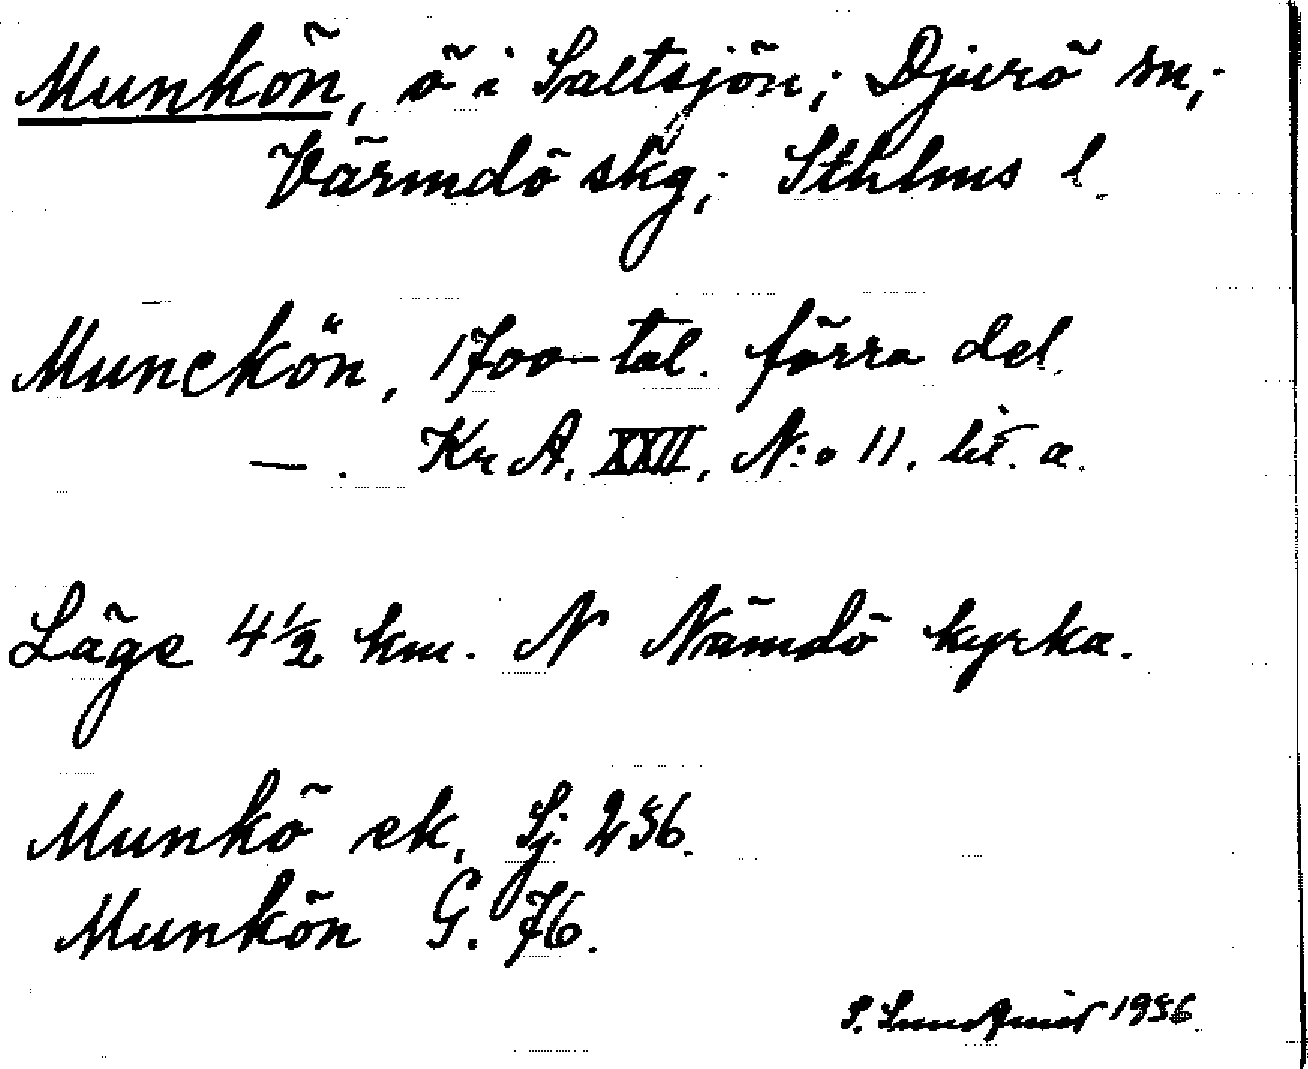 Munkön, ö i Saltsjön; Djurö sn,
Värmdö skg; Sthlms l.
Munckön, 1700-tal. förra del.
—. Kr A. XXII, N:o 11. lit. a.
Läge 4 1/2 km. N Nämdö kyrka.
Munkö ek. Sj. 256.
Munkön G. 76.
S. 1956